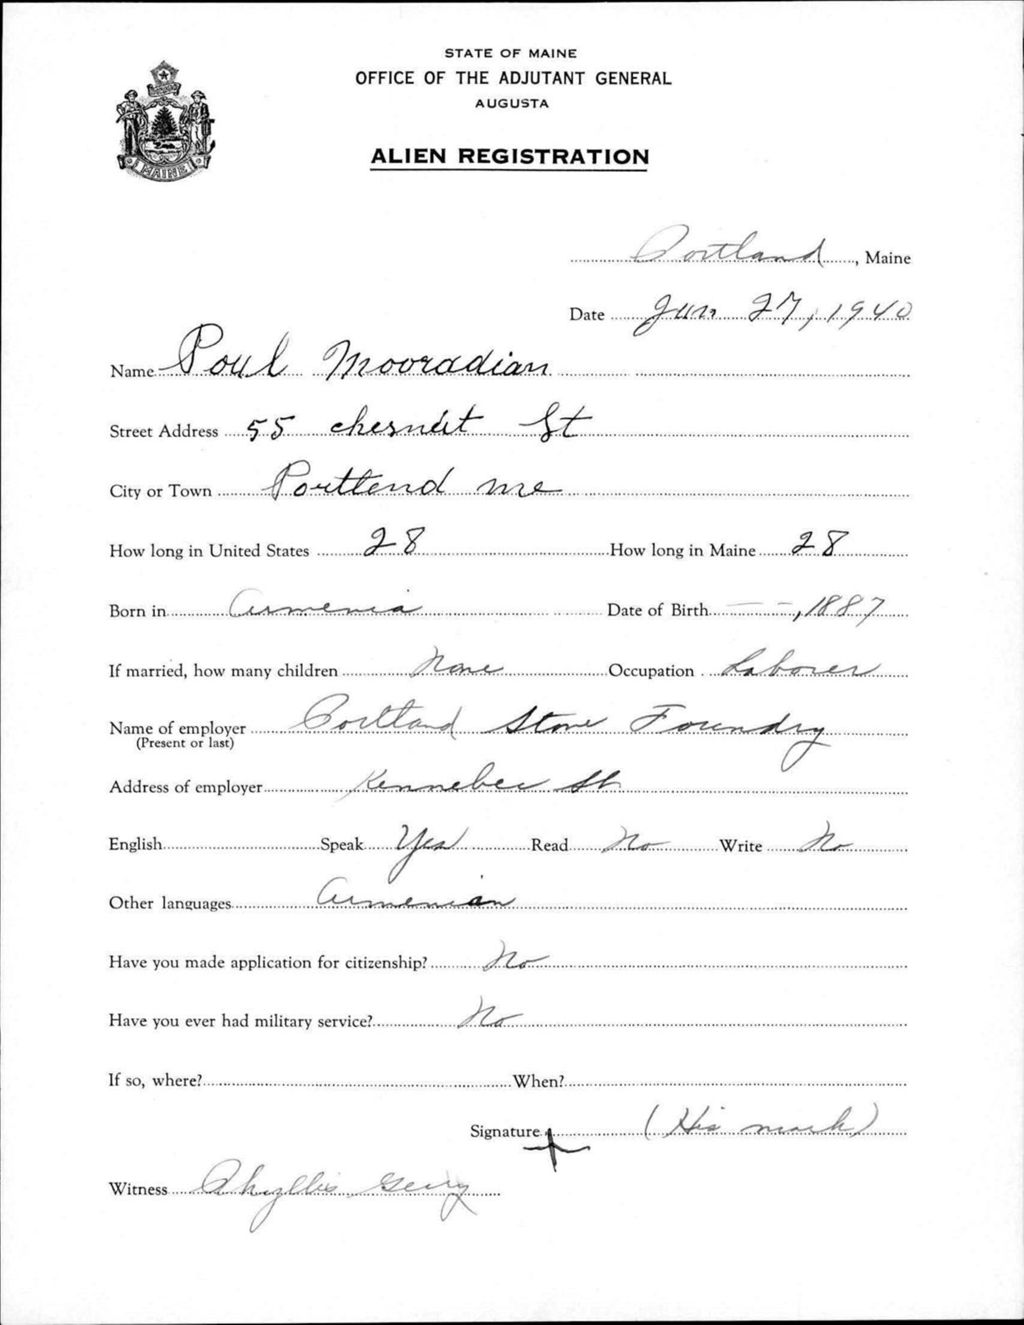 STATE OF MAINE
OFFICE OF THE ADJUTANT GENERAL
AUGUSTA
ALIEN REGISTRATION
MAINE
Portland, Maine
Date Jun 27, 1940
Name Poul Mooradian
Street Address 55 chesnut St
City or Town Porttend me
How long in United States 28 How long in Maine 28
Born in Armenia Date of Birth — —, 1887
If married, how many children None Occupation Laborer
Name of employer Portland Stove Foundry
(Present or last)
Address of employer Kennebec St.
English Speak Yes Read No Write No
Other languages Armenian
Have you made application for citizenship? No
Have you ever had military service? No
If so, where? When?
Signature + (His mark)
Witness Phyllis Geary